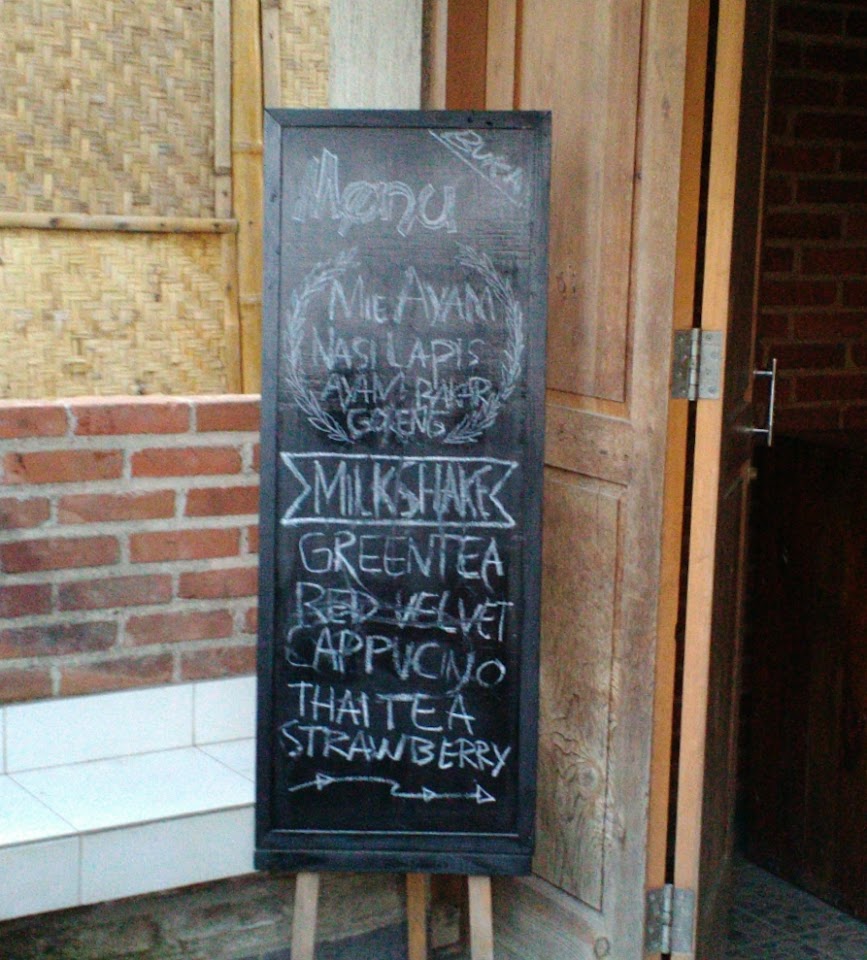 BUKA
Menu
MIE AYAM
NASI LAPIS
AYAM BAKAR
GORENG
MILKSHAKE
GREENTEA
RED VELVET
CAPPUCINO
THAI TEA
STRAWBERRY